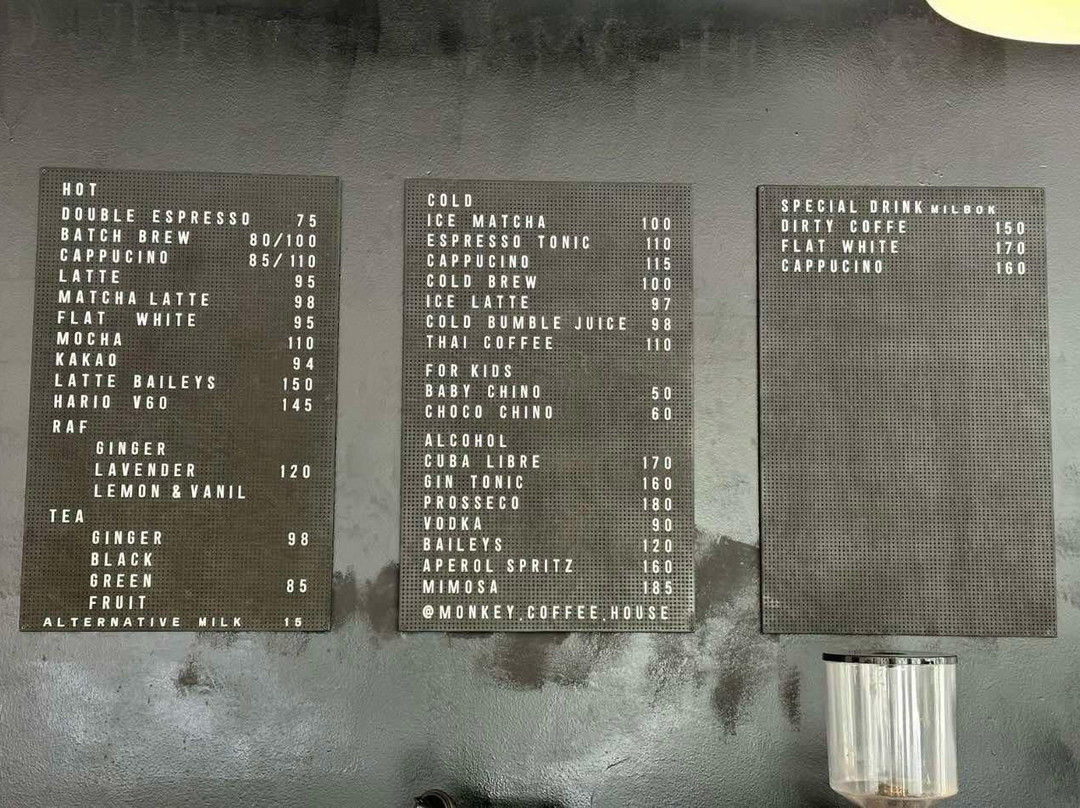 HOT
DOUBLE ESPRESSO 75
BATCH BREW 80/100
CAPPUCINO 85/110
LATTE 95
MATCHA LATTE 98
FLAT WHITE 95
MOCHA 110
KAKAO 94
LATTE BAILEYS 150
HARIO V60 145
RAF
GINGER
LAVENDER 120
LEMON & VANIL
TEA
GINGER 98
BLACK
GREEN 85
FRUIT
ALTERNATIVE MILK 15
COLD
ICE MATCHA 100
ESPRESSO TONIC 110
CAPPUCINO 115
COLD BREW 100
ICE LATTE 97
COLD BUMBLE JUICE 98
THAI COFFEE 110
FOR KIDS
BABY CHINO 50
CHOCO CHINO 60
ALCOHOL
CUBA LIBRE 170
GIN TONIC 160
PROSSECO 180
VODKA 90
BAILEYS 120
APEROL SPRITZ 160
MIMOSA 185
@MONKEY.COFFEE.HOUSE
SPECIAL DRINK MILBOK
DIRTY COFFE 150
FLAT WHITE 170
CAPPUCINO 160